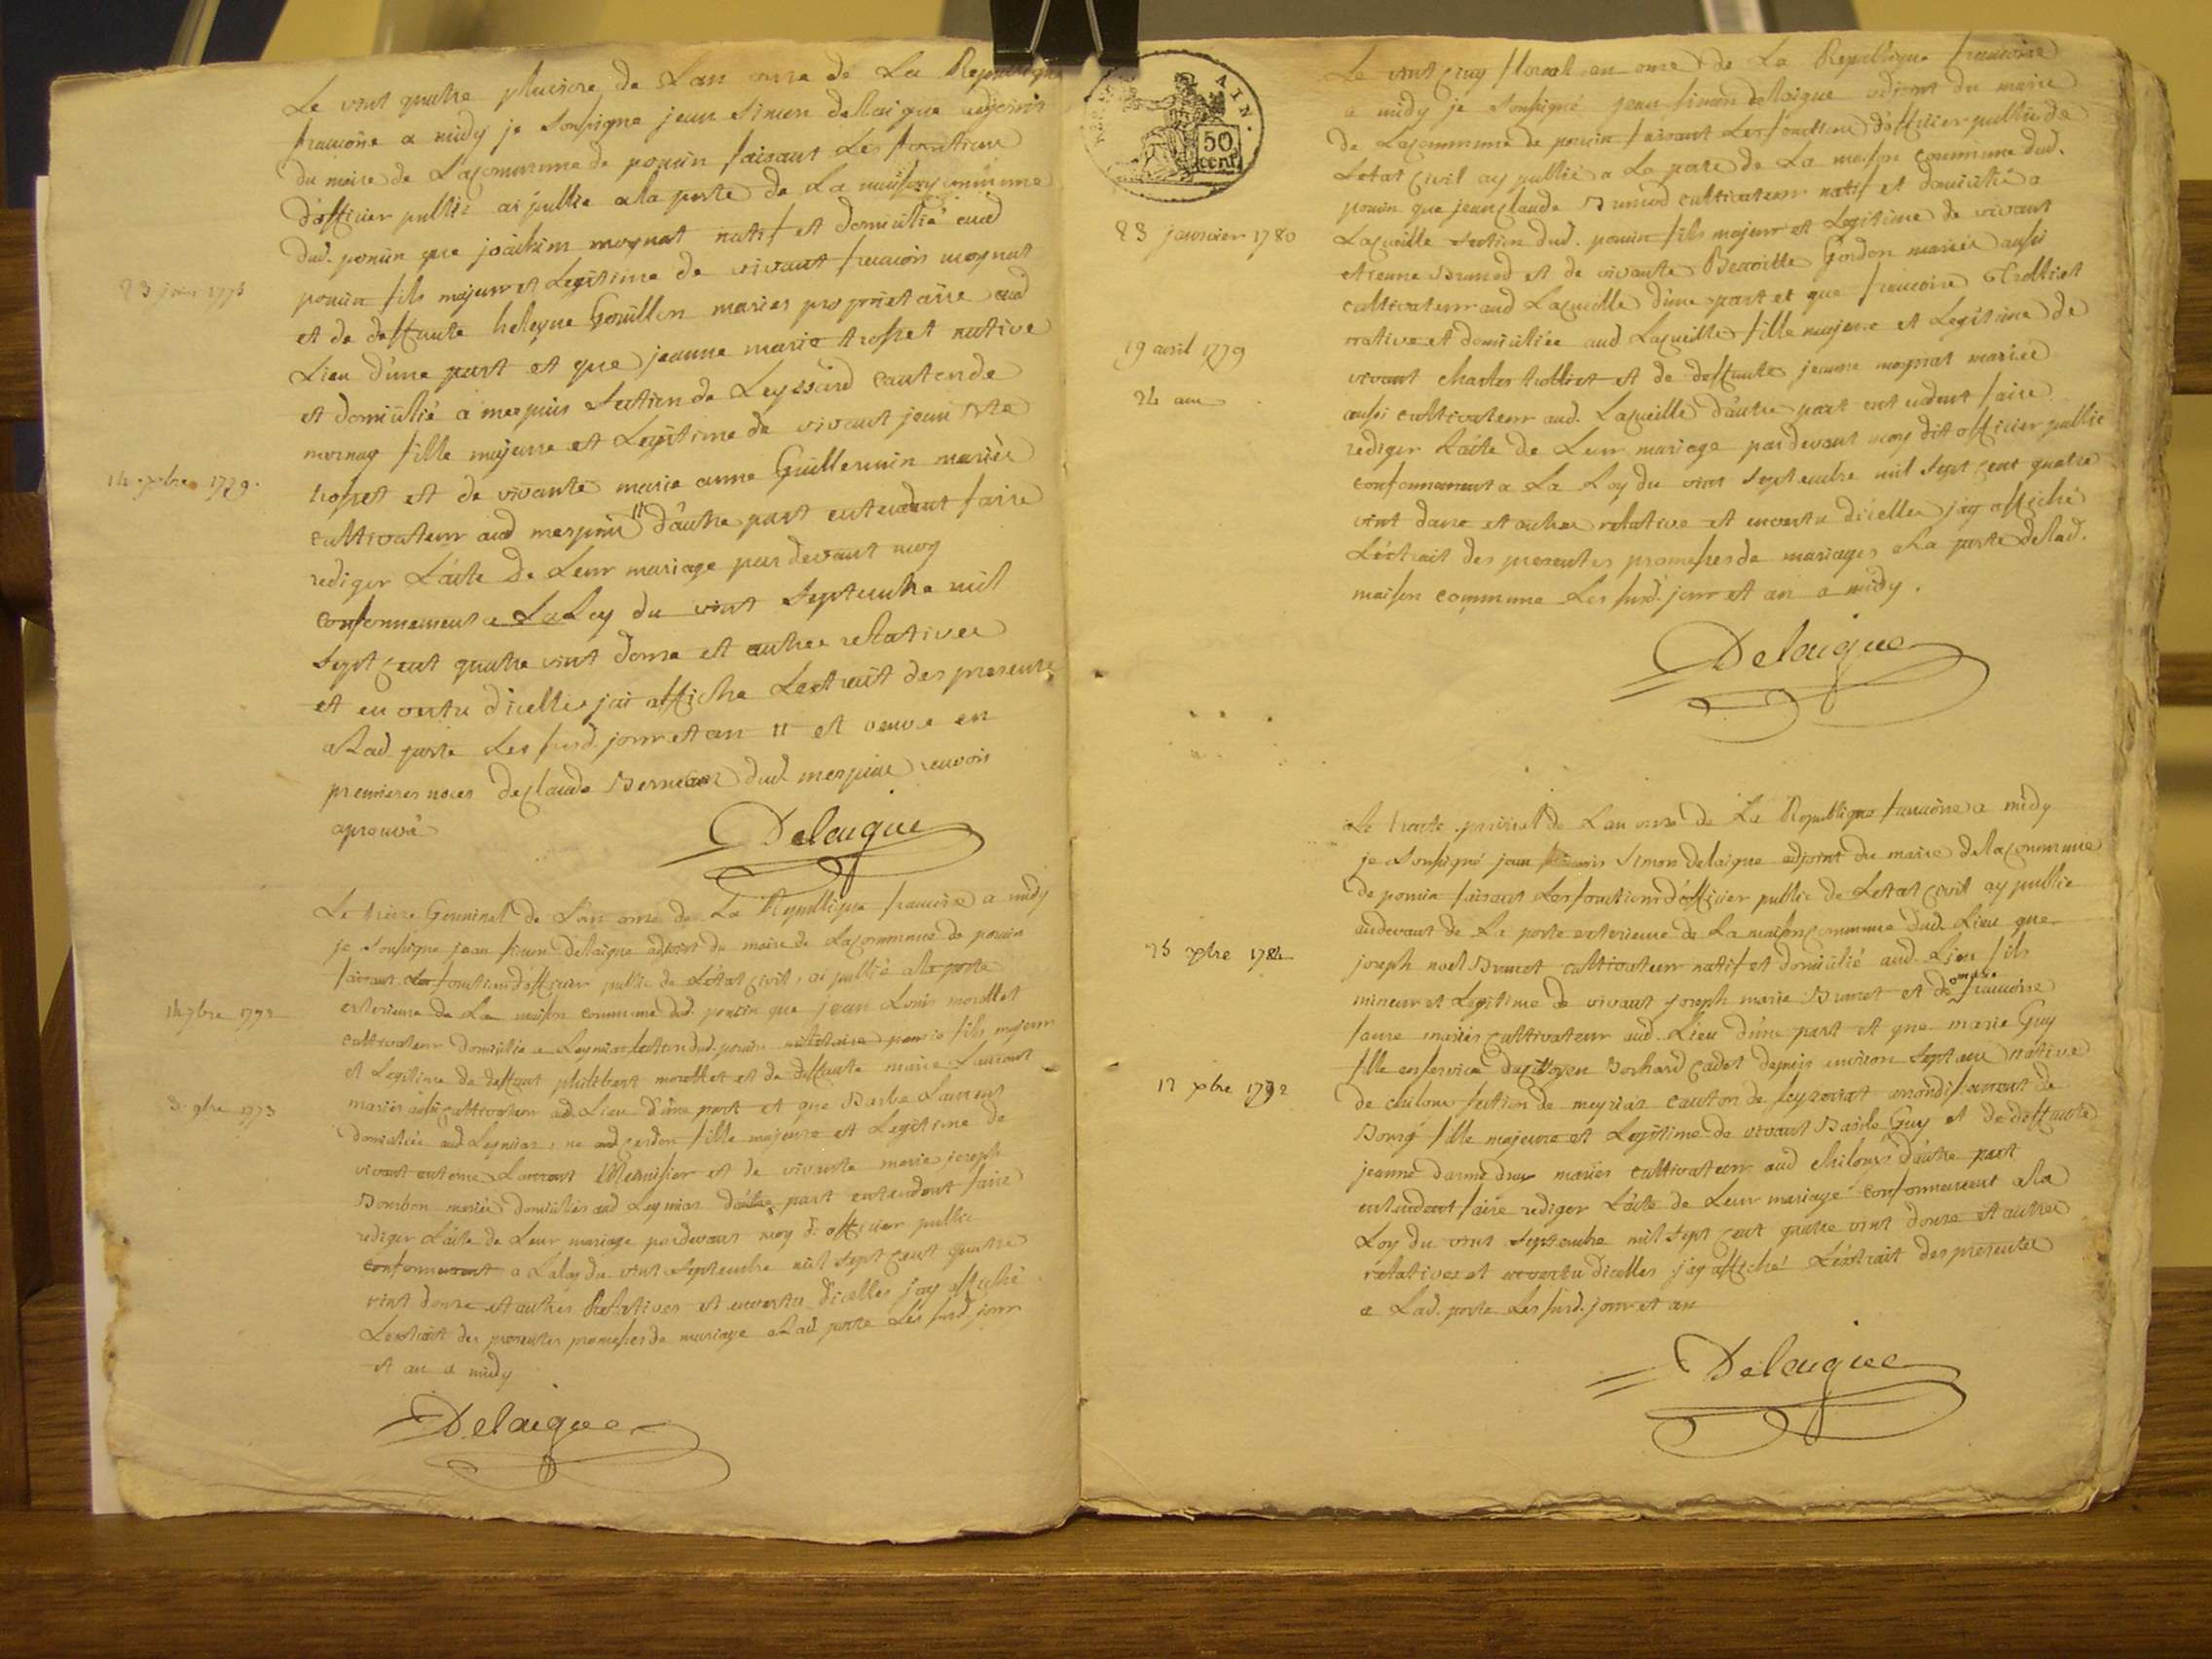 Le vint quatre pluviose de Lan onze de La Republique
francoise a midy je Soussigne jean Simon delaigue adjoint
du maire de La commune de poncin faisant Les fonctions
d'officier public ai publie a la porte de La maison commune
dud. poncin que joachim moynat natif et domicilié aud
23 juin 1773
poncin fils majeur et Legitime de vivant francois moynat
et de deffunte heleyne Gouillon maries proprietaire aud
Lieu d'une part et que jeanne marie trosset native
et domicilié a mespiu Section de Leyssard canton de
nornay fille majeure et Legitime de vivant jean Bte
14 xbre 1779.
trosset et de vivante marie anne Guillermin mariés
cultivateur aud mespiu " d'autre part entendent faire
rediger L'acte de Leur mariage par devant moy
conformement a La Loy du vint Septembre mil
Sept cent quatre vint douze et autres relatives
et en vertu dicelles j'ai affiché Lextrait des presentes
a Lad. porte Les susd. jour et an " et veuve en
premieres noces de claude dud. mespiu renvoir
aprouvé
Delaigue
Le treize Germinal de L'an onze de La Republique francoise a midy
je Soussigne jean simon delaigue adjoint du maire de La commune de poncin
faisant Les fonctions d'officier public de L'état civil, ai publié a la porte
exterieure de La maison commune dud. poncin que jean Louis morellet
cultivateur domicilié a Leymiat section dud. poncin fils majeur
et Legitime de deffunt philibert morellet et de deffunte marie Laurent
3 9bre 1773
mariés aussi cultivateur aud. Lieu d'une part et que Barbe Laurent
domiciliée aud Leymiat, ne aud cerdon fille majeure et Legitime de
vivant antoine Laurent et de vivante marie joseph
Bourbon mariés domiciliés aud Leymiat d'autre part entendent faire
rediger L'acte de Leur mariage pardevant moy d. officier public
conformement a La Loy du vint Septembre mil sept cent quatre
vint douze et autres Relatives et en vertu dicelles j'ay affiché
Lextrait des presentes promesses de mariage a Lad porte Les susd jour
et an a midy
Delaigue
AIN.
50
cent.
Le vint cinq floreal an onze de La Republique francoise
a midy je Soussigné jean simon delaigue adjoint du maire
de La commune de poncin faisant Les fonctions d'officier public de
Letat civil ay publié a La porte de La maison commune dud.
poncin que jean claude Brunod cultivateur natif et domicilié a
23 janvier 1780
Lacueille Section dud. poncin fils majeur et Legitime de vivant
etienne Brunod et de vivante Benoitte Gordon mariés aussi
cultivateur aud Lacueille d'une part et que francoise Trolliet
19 avril 1779
native et domiciliée aud Lacueille fille majeure et Legitime de
vivant charles trolliet et de deffunte jeanne moynat mariés
24 ans
aussi cultivateur aud. Lacueille d'autre part entendent faire
rediger L'acte de Leur mariage pardevant moy dit officier public
conformement a La Loy du vint Septembre mil Sept cent quatre
vint douze et autres relative et en vertu dicelles j'ay affiché
L'extrait des presentes promesses de mariages a La porte de Lad.
maison commune Les susd. jour et an a midy.
Delaigue
Le trente prairial de Lan onze de La Republique francoise a midy
je Soussigné jean Simon delaigue adjoint du maire de La commune
de poncin faisant Les fonctions d'officier public de Letat civil ay publié
audevant de La porte exterieure de La maison commune dud. Lieu que
25 xbre 1784
joseph noel Brunet cultivateur natif et domicilié aud. Lieu fils
mineur et Legitime de vivant joseph marie Brunet et de francoise
faure mariés cultivateur aud. Lieu d'une part et que marie Guy
fille en service du citoyen Bochard cadet depuis environ Sept ans native
de chiloux section de meyriat canton de ceyzeriat arondissement de
Bourg fille majeure et Legitime de vivant Basile Guy et de deffunte
jeanne mariés cultivateur aud chiloux d'autre part
entendent faire rediger L'acte de Leur mariage conformement a La
Loy du vint Septembre mil Sept cent quatre vint douze et autres
relatives et en vertu dicelles j'ay affiché L'extrait des presentes
a Lad. porte Les susd. jour et an
Delaigue